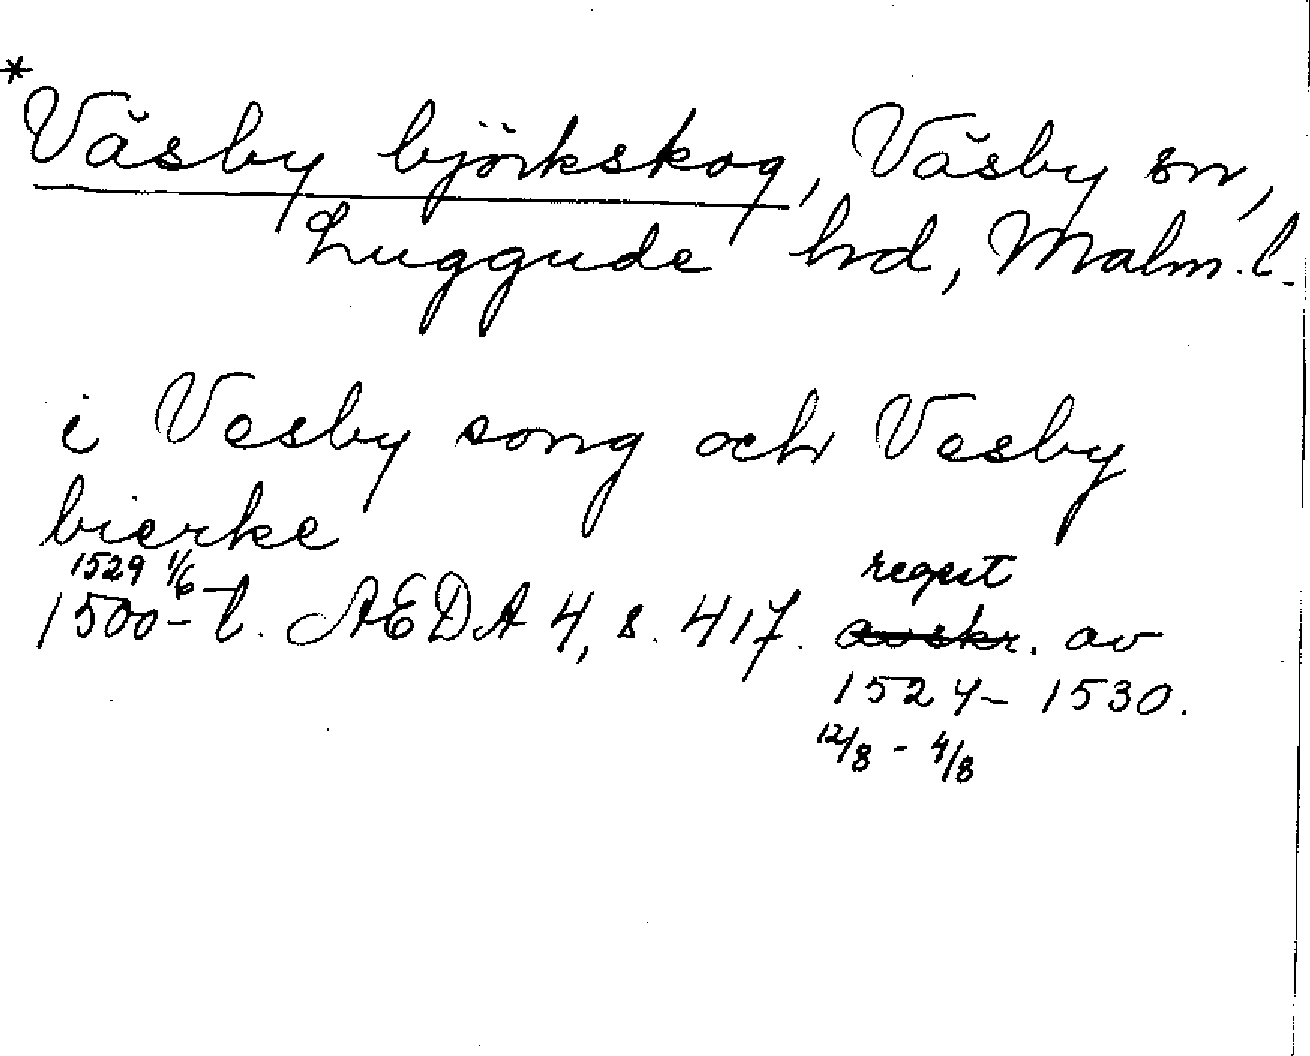 *
Väsby björkskog, Väsby sn,
Luggude hd, Malm. l.
i Vesby song och Vesby
bierke
1529 1/6
1500-t. AEDA 4, s. 417. avskr. av
regest
1524-1530.
12/8 - 4/8